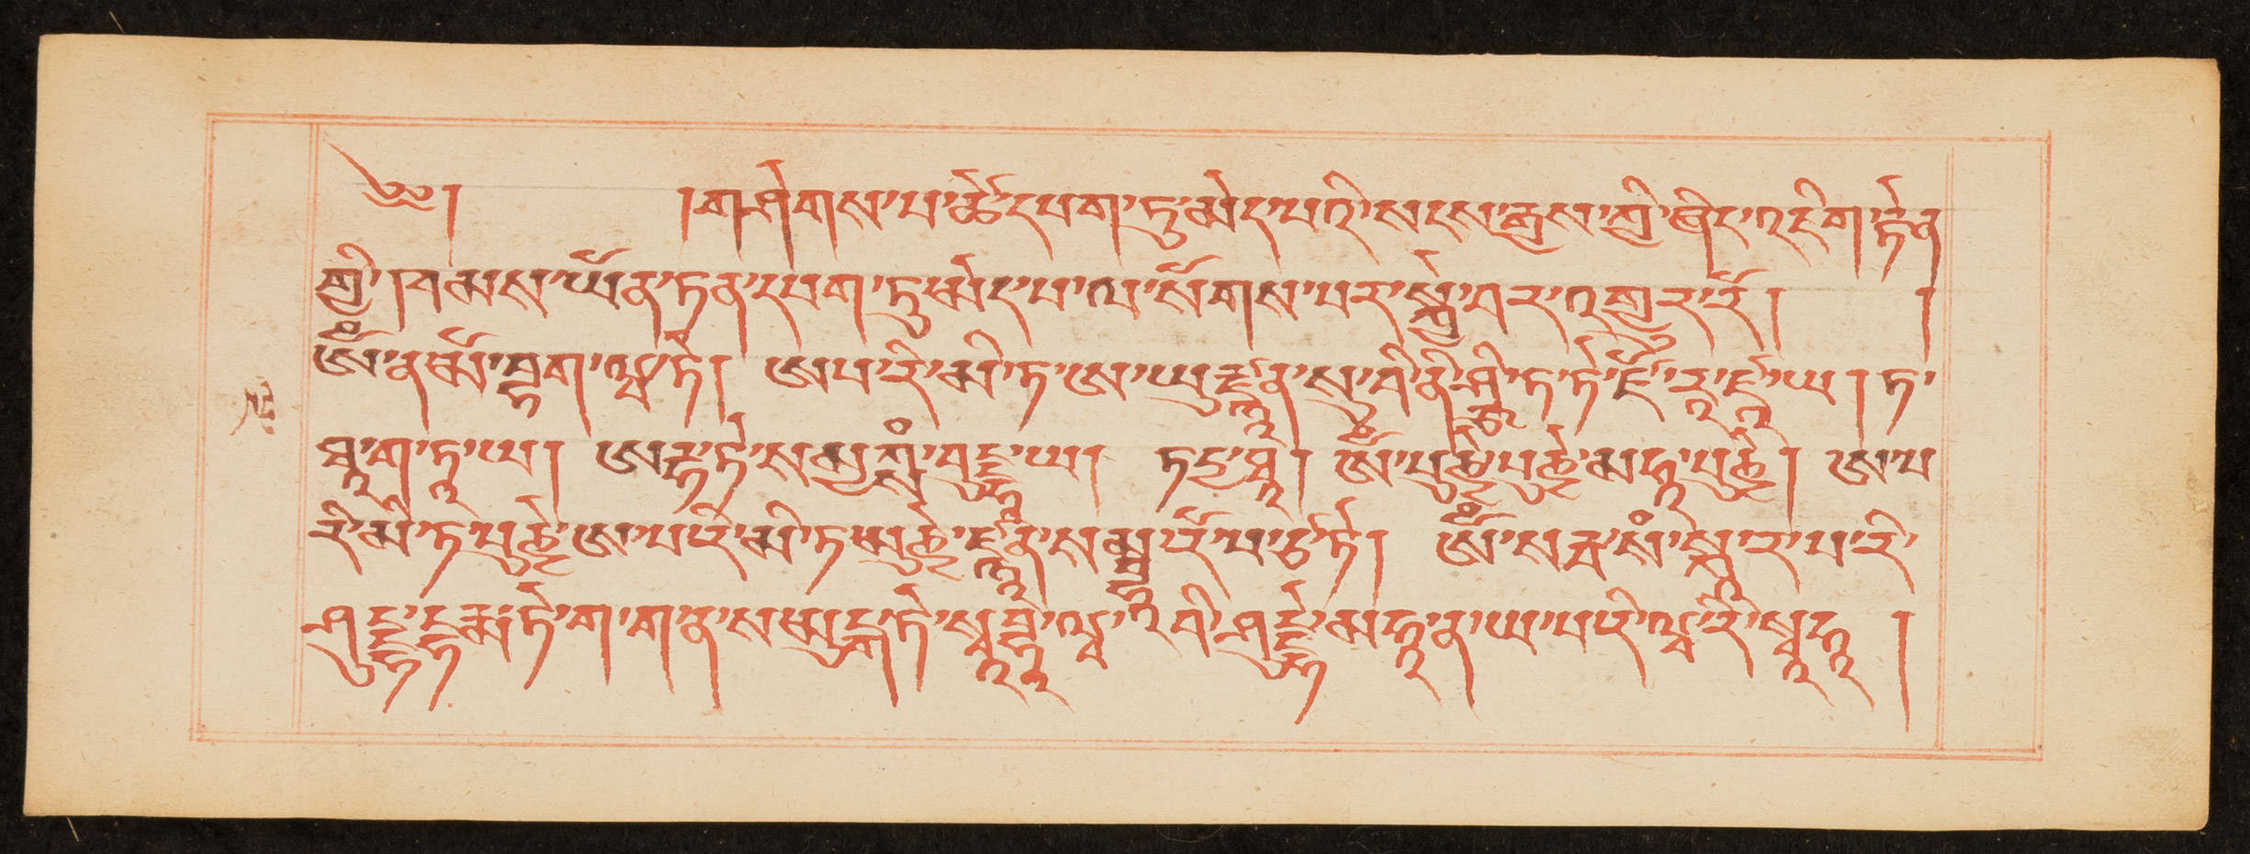 ༄། །གཤེགས་པ་ཚེ་དཔག་ཏུ་མེད་པའི་སངས་རྒྱས་ཀྱི་ཞིང་འདིག་རྟེན
གྱི། ཁམས་ཡོན་ཏན་དཔག་ཏུ་མེད་པ་ལ་སོགས་པར་སྐྱེ་བར་འགྱུར་རོ། །
ཨོཾ་ན་མོ་བྷ་ག་ཝ་ཏེ། ཨ་པ་རི་མི་ཏ་ཨ་ཡུརྫྙཱ་ན་སུ་བི་ནི་ཤྩི་ཏ་ཏེ་ཛོ་རཱ་ཛཱ་ཡ། ཏ་
ཐཱ་ག་ཏཱ་ཡ། ཨརྷ་ཏེ་སམྱཀྶཾ་བུདྡྷཱ་ཡ། ཏདྱ་ཐཱ། ཨོཾ་པུཎྱེ་པུཎྱེ་མཧཱ་པུཎྱེ། ཨ་པ
རི་མི་ཏ་པུཎྱེ་ཨ་པ་རི་མི་ཏ་པུཎྱེ་ཛྙཱ་ན་སམྦྷཱ་རོ་པ་ཙི་ཏེ། ཨོཾ་སརྦ་སཾ་སྐཱ་ར་པ་རི་
ཤུདྡྷ་དྷརྨ་ཏེ་ག་ག་ན་ས་མུདྒ་ཏེ་སྭ་བྷཱ་ཝ་བི་ཤུདྡྷེ་མ་ཧཱ་ན་ཡ་པ་རི་ཝཱ་རེ་སྭཱ་ཧཱ །